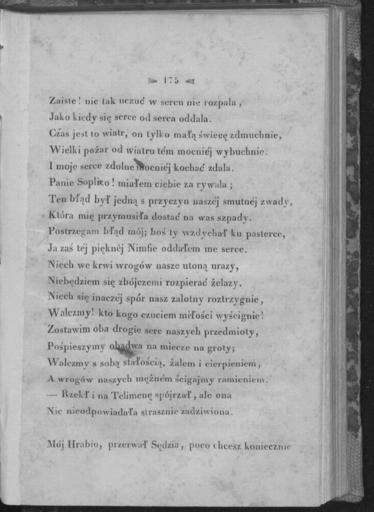 175
Zaiste! nic tak uczuć w sercu nie rozpala,
Jako kiedy się serce od serca oddala.
Czas jest to wiatr, on tylko małą świecę zdmuchnie,
Wielki pożar od wiatru tém mocniéj wybuchnie.
I moje serce zdolne mocniéj kochać zdala.
Panie Soplico! miałem ciebie za rywala;
Ten błąd był jedną z przyczyn naszéj smutnéj zwady,
Która mię przymusiła dostać na was szpady.
Postrzegam błąd mój; boś ty wzdychał ku pasterce,
Ja zaś téj pięknéj Nimfie oddałem me serce.
Niech we krwi wrogów nasze utoną urazy,
Niebędziem się zbójczemi rozpierać żelazy.
Niech się inaczéj spór nasz zalotny roztrzygnie,
Walczmy! kto kogo czuciem miłości wyścignie!
Zostawim oba drogie serc naszych przedmioty,
Pośpieszymy obadwa na miecze na groty;
Walczmy z sobą stałością, żalem i cierpieniem,
A wrogów naszych mężném ścigajmy ramieniem.
— Rzekł i na Telimenę spójrzał, ale ona
Nic nieodpowiadała strasznie zadziwiona.
Mój Hrabio, przerwał Sędzia, poco chcesz koniecznie